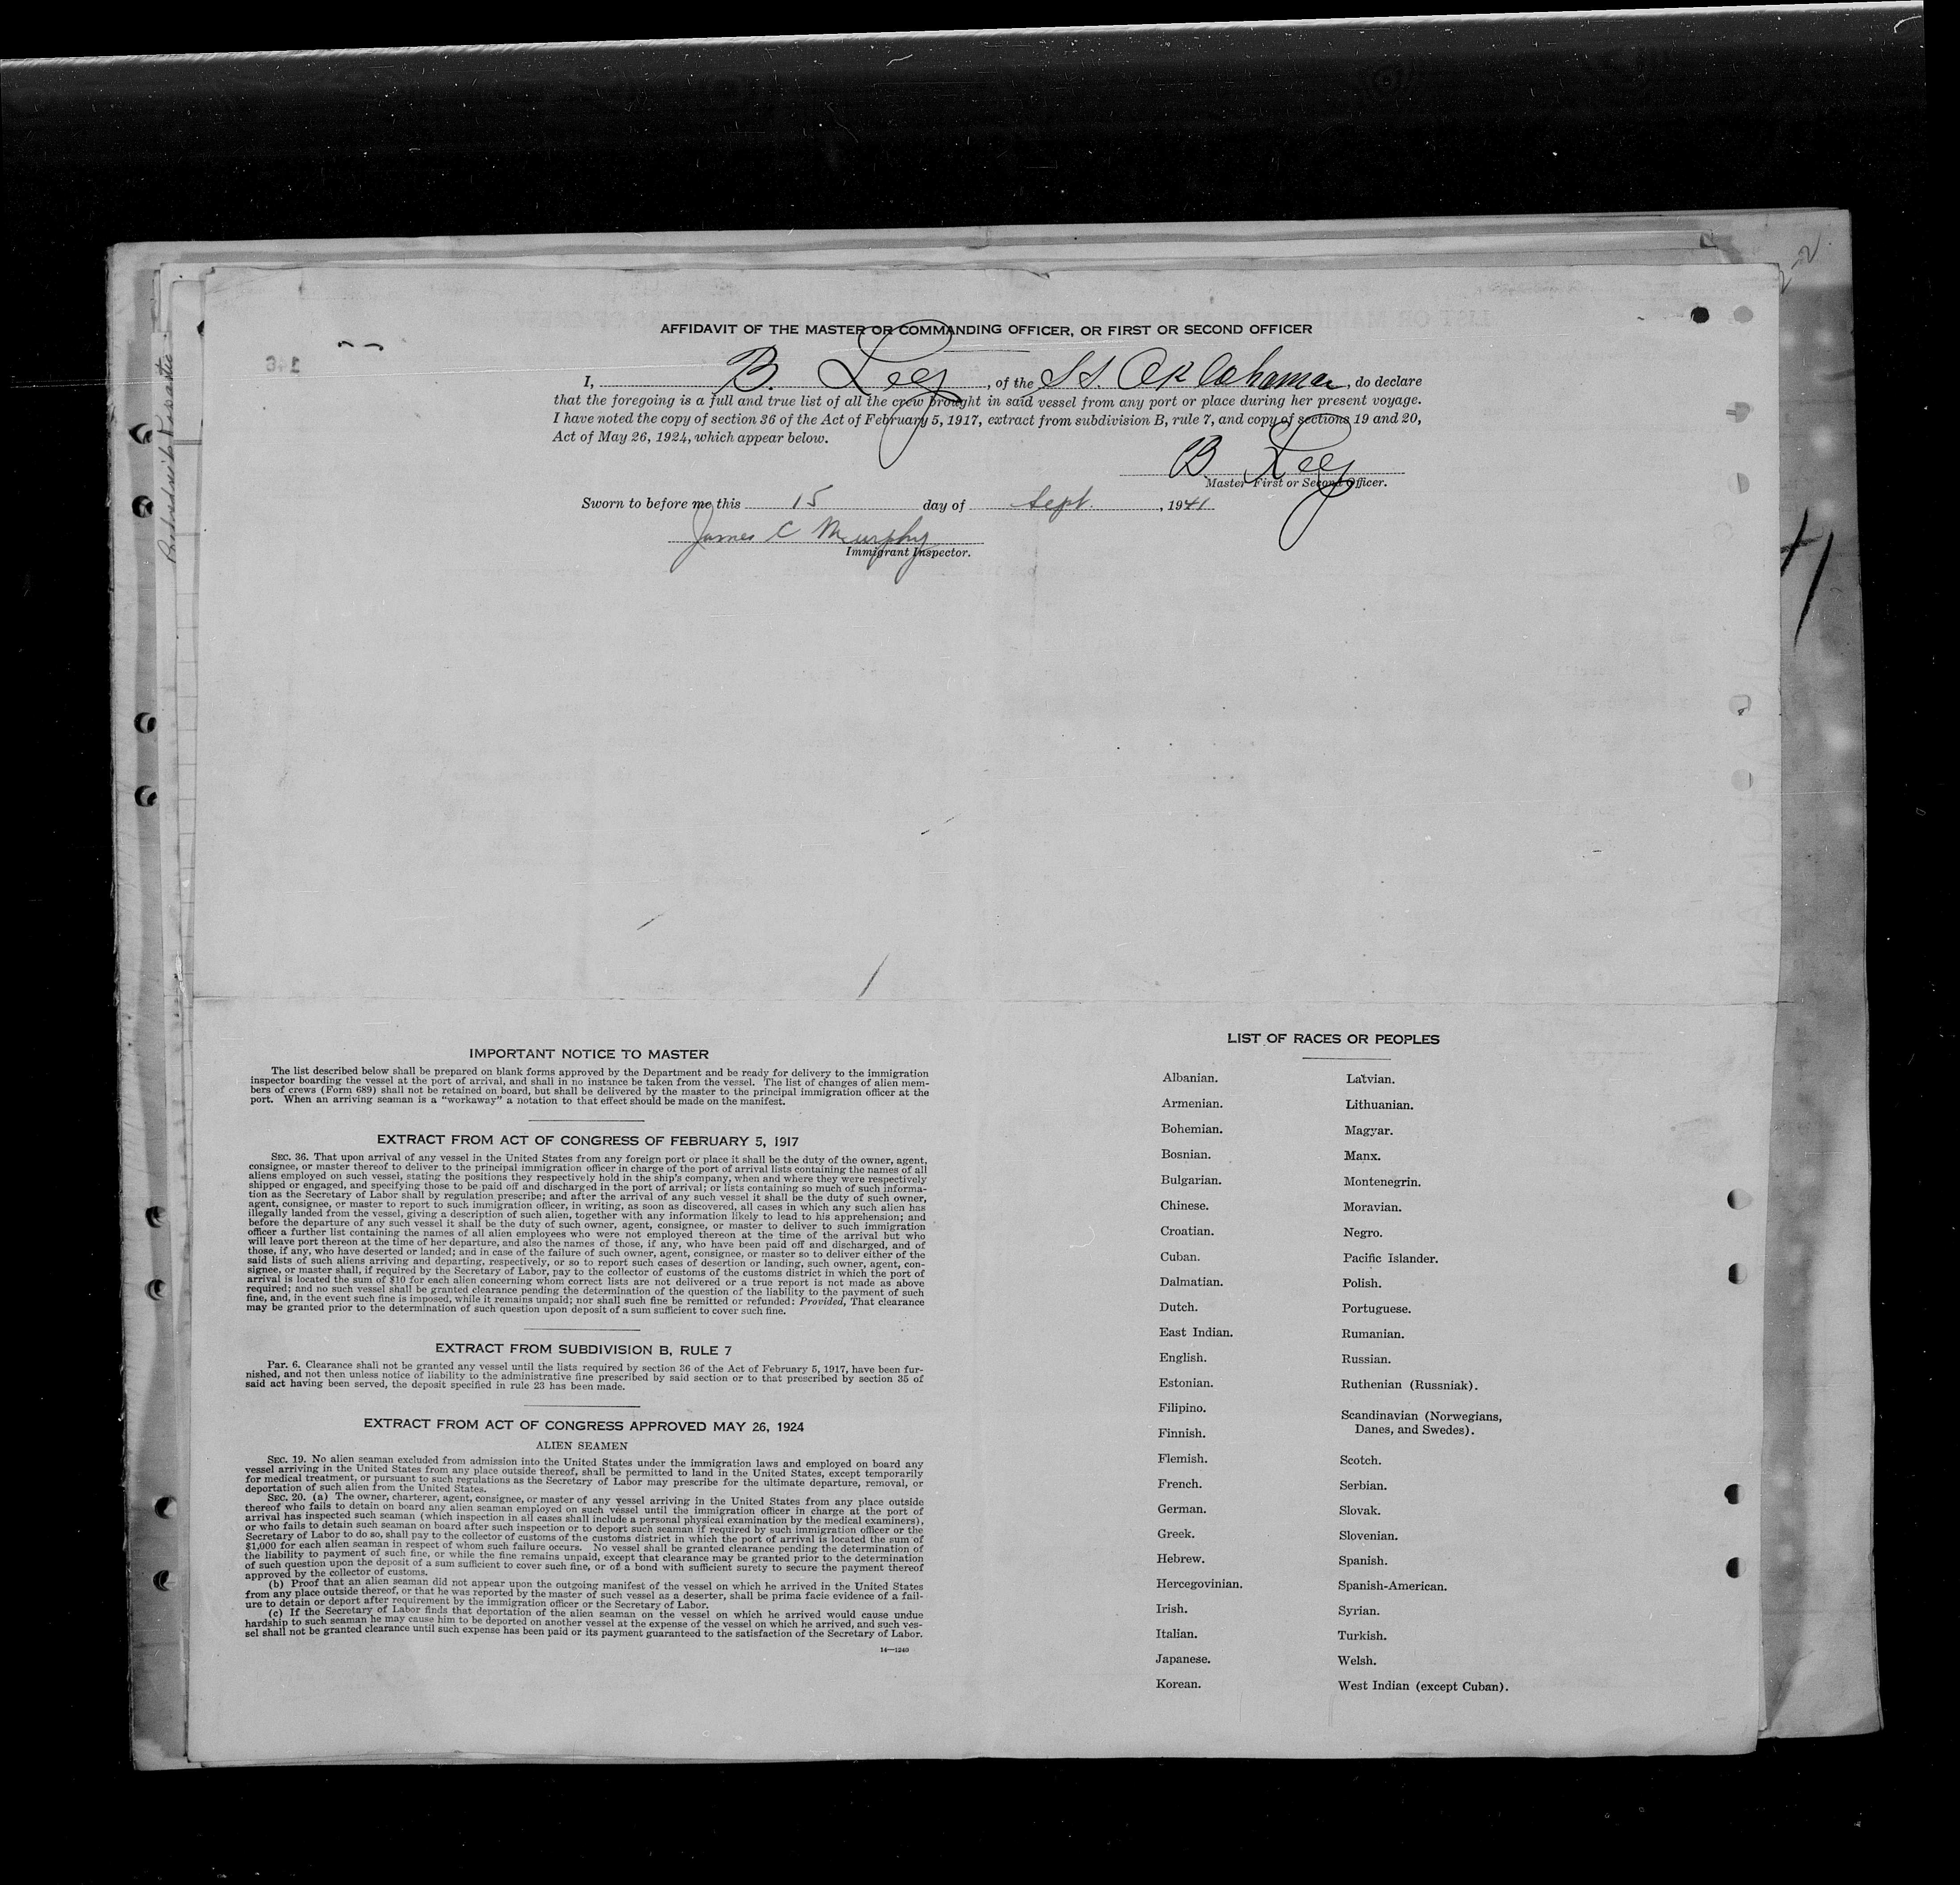 AFFIDAVIT OF THE MASTER OR COMMANDING OFFICER, OR FIRST OR SECOND OFFICER
I, B. Leeg, of the SS. Oklahoma, do declare
that the foregoing is a full and true list of all the crew brought in said vessel from any port or place during her present voyage.
I have noted the copy of section 36 of the Act of February 5, 1917, extract from subdivision B, rule 7, and copy of sections 19 and 20,
Act of May 26, 1924, which appear below.
B Leeg
Master First or Second Officer.
Sworn to before me this 15 day of Sept., 1941
James C Murphy
Immigrant Inspector.
IMPORTANT NOTICE TO MASTER
The list described below shall be prepared on blank forms approved by the Department and be ready for delivery to the immigration
inspector boarding the vessel at the port of arrival, and shall in no instance be taken from the vessel. The list of changes of alien mem-
bers of crews (Form 689) shall not be retained on board, but shall be delivered by the master to the principal immigration officer at the
port. When an arriving seaman is a "workaway" a notation to that effect should be made on the manifest.
EXTRACT FROM ACT OF CONGRESS OF FEBRUARY 5, 1917
SEC. 36. That upon arrival of any vessel in the United States from any foreign port or place it shall be the duty of the owner, agent,
consignee, or master thereof to deliver to the principal immigration officer in charge of the port of arrival lists containing the names of all
aliens employed on such vessel, stating the positions they respectively hold in the ship's company, when and where they were respectively
shipped or engaged, and specifying those to be paid off and discharged in the port of arrival; or lists containing so much of such informa-
tion as the Secretary of Labor shall by regulation prescribe; and after the arrival of any such vessel it shall be the duty of such owner,
agent, consignee, or master to report to such immigration officer, in writing, as soon as discovered, all cases in which any such alien has
illegally landed from the vessel, giving a description of such alien, together with any information likely to lead to his apprehension; and
before the departure of any such vessel it shall be the duty of such owner, agent, consignee, or master to deliver to such immigration
officer a further list containing the names of all alien employees who were not employed thereon at the time of the arrival but who
will leave port thereon at the time of her departure, and also the names of those, if any, who have been paid off and discharged, and of
those, if any, who have deserted or landed; and in case of the failure of such owner, agent, consignee, or master so to deliver either of the
said lists of such aliens arriving and departing, respectively, or so to report such cases of desertion or landing, such owner, agent, con-
signee, or master shall, if required by the Secretary of Labor, pay to the collector of customs of the customs district in which the port of
arrival is located the sum of $10 for each alien concerning whom correct lists are not delivered or a true report is not made as above
required; and no such vessel shall be granted clearance pending the determination of the question of the liability to the payment of such
fine, and, in the event such fine is imposed, while it remains unpaid; nor shall such fine be remitted or refunded: Provided, That clearance
may be granted prior to the determination of such question upon deposit of a sum sufficient to cover such fine.
EXTRACT FROM SUBDIVISION B, RULE 7
Par. 6. Clearance shall not be granted any vessel until the lists required by section 36 of the Act of February 5, 1917, have been fur-
nished, and not then unless notice of liability to the administrative fine prescribed by said section or to that prescribed by section 35 of
said act having been served, the deposit specified in rule 23 has been made.
EXTRACT FROM ACT OF CONGRESS APPROVED MAY 26, 1924
ALIEN SEAMEN
SEC. 19. No alien seaman excluded from admission into the United States under the immigration laws and employed on board any
vessel arriving in the United States from any place outside thereof, shall be permitted to land in the United States, except temporarily
for medical treatment, or pursuant to such regulations as the Secretary of Labor may prescribe for the ultimate departure, removal, or
deportation of such alien from the United States.
SEC. 20. (a) The owner, charterer, agent, consignee, or master of any vessel arriving in the United States from any place outside
thereof who fails to detain on board any alien seaman employed on such vessel until the immigration officer in charge at the port of
arrival has inspected such seaman (which inspection in all cases shall include a personal physical examination by the medical examiners),
or who fails to detain such seaman on board after such inspection or to deport such seaman if required by such immigration officer or the
Secretary of Labor to do so, shall pay to the collector of customs of the customs district in which the port of arrival is located the sum of
$1,000 for each alien seaman in respect of whom such failure occurs. No vessel shall be granted clearance pending the determination of
the liability to payment of such fine, or while the fine remains unpaid, except that clearance may be granted prior to the determination
of such question upon the deposit of a sum sufficient to cover such fine, or of a bond with sufficient surety to secure the payment thereof
approved by the collector of customs.
(b) Proof that an alien seaman did not appear upon the outgoing manifest of the vessel on which he arrived in the United States
from any place outside thereof, or that he was reported by the master of such vessel as a deserter, shall be prima facie evidence of a fail-
ure to detain or deport after requirement by the immigration officer or the Secretary of Labor.
(c) If the Secretary of Labor finds that deportation of the alien seaman on the vessel on which he arrived would cause undue
hardship to such seaman he may cause him to be deported on another vessel at the expense of the vessel on which he arrived, and such ves-
sel shall not be granted clearance until such expense has been paid or its payment guaranteed to the satisfaction of the Secretary of Labor.
14—1240
LIST OF RACES OR PEOPLES
Albanian.
Armenian.
Bohemian.
Bosnian.
Bulgarian.
Chinese.
Croatian.
Cuban.
Dalmatian.
Dutch.
East Indian.
English.
Estonian.
Filipino.
Finnish.
Flemish.
French.
German.
Greek.
Hebrew.
Hercegovinian.
Irish.
Italian.
Japanese.
Korean.
Latvian.
Lithuanian.
Magyar.
Manx.
Montenegrin.
Moravian.
Negro.
Pacific Islander.
Polish.
Portuguese.
Rumanian.
Russian.
Ruthenian (Russniak).
Scandinavian (Norwegians,
Danes, and Swedes).
Scotch.
Serbian.
Slovak.
Slovenian.
Spanish.
Spanish-American.
Syrian.
Turkish.
Welsh.
West Indian (except Cuban).